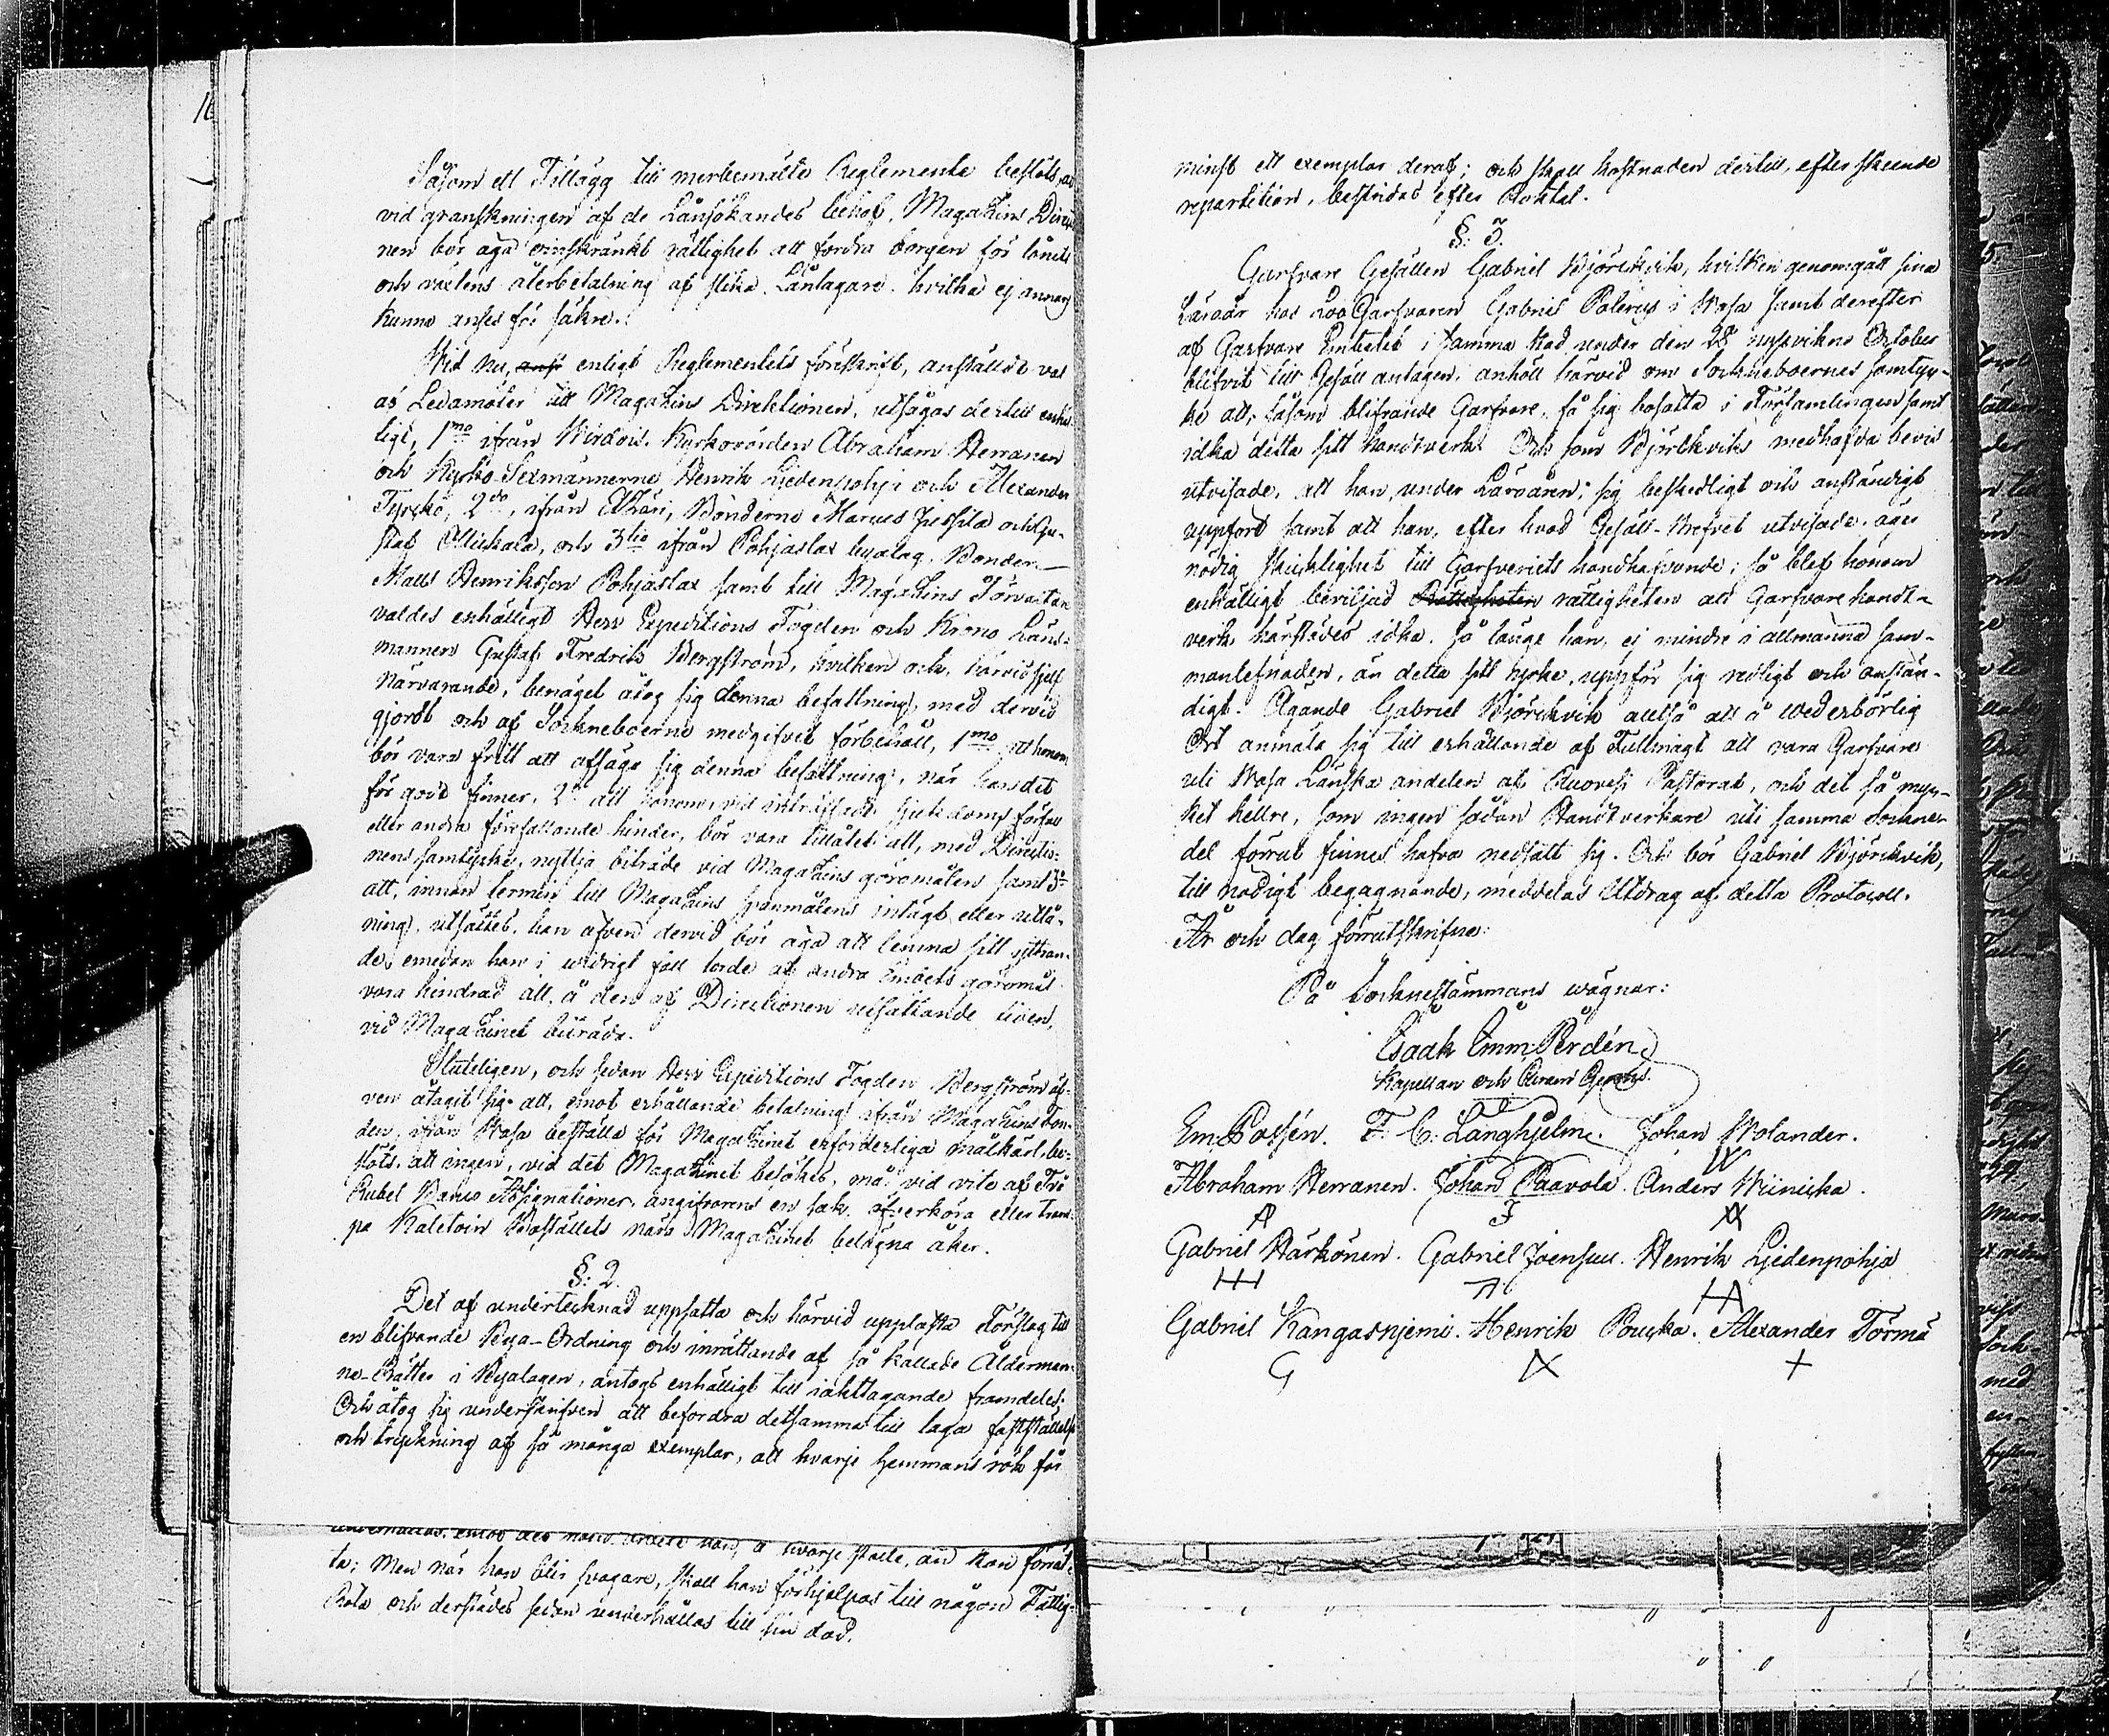 Såsom ett Tillägg till merbemälte Reglemente beslöts, at
vid granskningen af de Lånsökandes behof, Magazins Direc
nen bör äga oinskränkt rättighet att fordra borgen för lånets
och räntens återbetalning af slika Låntagare, hvilka ej annars
kunna anses för säkre.
Vid nu, enligt Reglementets föreskrift, anställdt val
af Ledamöter till Magazins Direktionen, utsågos dertill enhäl
ligt, 1mo ifrån Wirdois, Kyrkovärden Abraham Herranen
och Kyrko-Sexmännerne Henrik Liedenpohja och Alexander
Tyrskö, 2do, ifrån Etzäri, Bönderne Marcus Jussila och Gu-
staf Ollickala, och 3tio ifrån Pohjaslax byalag, Bonden
Matts Henriksson Pohjaslax samt till Magazins Förvaltare
valdes enhälligt Herr Expeditions Fogden och Krono Läns-
mannen Gustaf Fredrik Bergström, hvilken och, härvid sjelf
närvarande, benäget åtog sig denna befattning, med dervid
gjordt och af Sockneboerne medgifvet förbehåll, 1mo att honom
bör vara fritt att afsäga sig denna befattning, när han det
för godt finner, 2o att honom, vid inträffadt sjukdoms förfall
eller andra förefallande hinder, bör vara tillåtet att, med Directio-
nens samtycke, nyttja biträde vid Magazins göromålen samt 3o
att, innan termin till Magazins spannmålens intägt eller utlå-
ning, utsättes, han äfven dervid bör äga att lemna sitt yttran-
de, emedan han i widrigt fall torde af andra Embets göromål
vara hindrad att, å den af Directionen utsättande tiden,
vid Magazinet biträda.
Sluteligen, och sedan Herr Expeditions Fogden Bergström äf-
ven åtagit sig att, emot erhållande betalning ifrån Magazins fon-
den, ifrån Wasa beställa för Magazinet erforderliga målkärl, be-
slöts, att ingen, vid det Magazinet besökes, må vid vite af Tre
Rubel Banco Assignationer, angifvarens en sak, öfverköra eller tram-
pa Kaletoin Boställets nära Magazinet belägna åker.
§: 2.
Det af undertecknad uppsatta och härvid upplästa Förslag till
en blifvande Bya-Ordning och inrättande af så kallade Ålderman-
ne-Rätter i Byalagen, antogs enhälligt till iakttagande framdeles;
Och åtog sig underskrifven att befordra detsamma till laga fastställelse
och tryckning af så många exemplar, att hvarje hemmans rök får
ta; Men när han blir svagare, skall han förhjelpas till någon Fattig-
Rota och derstädes sedan underhållas till sin död.
minst ett exemplar deraf; och skall kostnaden dertill, efter skeende
repartition, bestridas efter Röktal.
§: 3.
Garfvare Gesällen Gabriel Björckvik, hvilken genomgått sina
Läroår hos Garfvaren Gabriel Polerus i Wasa samt derefter
af Garfvare Embetet i samma stad under den 28 nyssvikne October
blifvit till Gesäll antagen, anhöll härvid om Sockneboernes samtyc-
ke att, såsom blifvande Garfvare, få sig bosätta i Församlingen samt
idka detta sitt handtverk. Och som Björckviks medhafda bevis
utvisade, att han, under Läroåren, sig beskedligt och anständigt
uppfört samt att han, efter hvad Gesäll-brefvet utvisade, äger
nödig skicklighet till Garfveriets handhafvande; så blef honom
enhälligt beviljad Rättigheten rättigheten att Garfvare handt-
verk härstädes idka, så länge han, ej mindre i allmänna sam-
manlefnaden, än detta sitt yrke, uppför sig redligt och anstän-
digt. Ägande Gabriel Björckvik alltså att å wederbörlig
Ort anmäla sig till erhållande af Fullmagt att vara Garfvare
uti Wasa Länska andelen af Ruovesi Pastorat, och det så myc-
ket hellre, som ingen sådan Handtverkare uti samma Sockne-
del förrut finnes hafva nedsatt sig. Och bör Gabriel Björckvik,
till nödigt begagnande, meddelas Utdrag af detta Protocoll.
År och dag förrutskrifne:
På Socknestämmans wägnar:
Isaak Emm: Perdén
Kapellan och
Em: Possén. F: C: Langhjelm. Johan Molander.
Abraham Herranen. Johan Paavola. Anders Wiiniska.
Gabriel Härkönen. Gabriel Joensuu. Henrik Liedenpohja
Gabriel Kangasnjemi. Henrik Poucka. Alexander Törmä